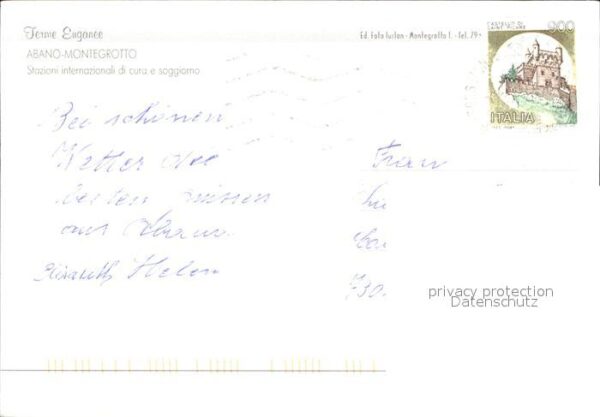 Terme Euganee
ABANO-MONTEGROTTO
Stazioni internazionali di cura e soggiorno
Ed. Foto Turlon - Montegrotto T. - Tel. 79
CASTELLO DI
900
ITALIA
Bei schönen
Wetter die
besten Grüssen
aus Abano
Elisabeth Helen
Frau
730.
privacy protection
Datenschutz